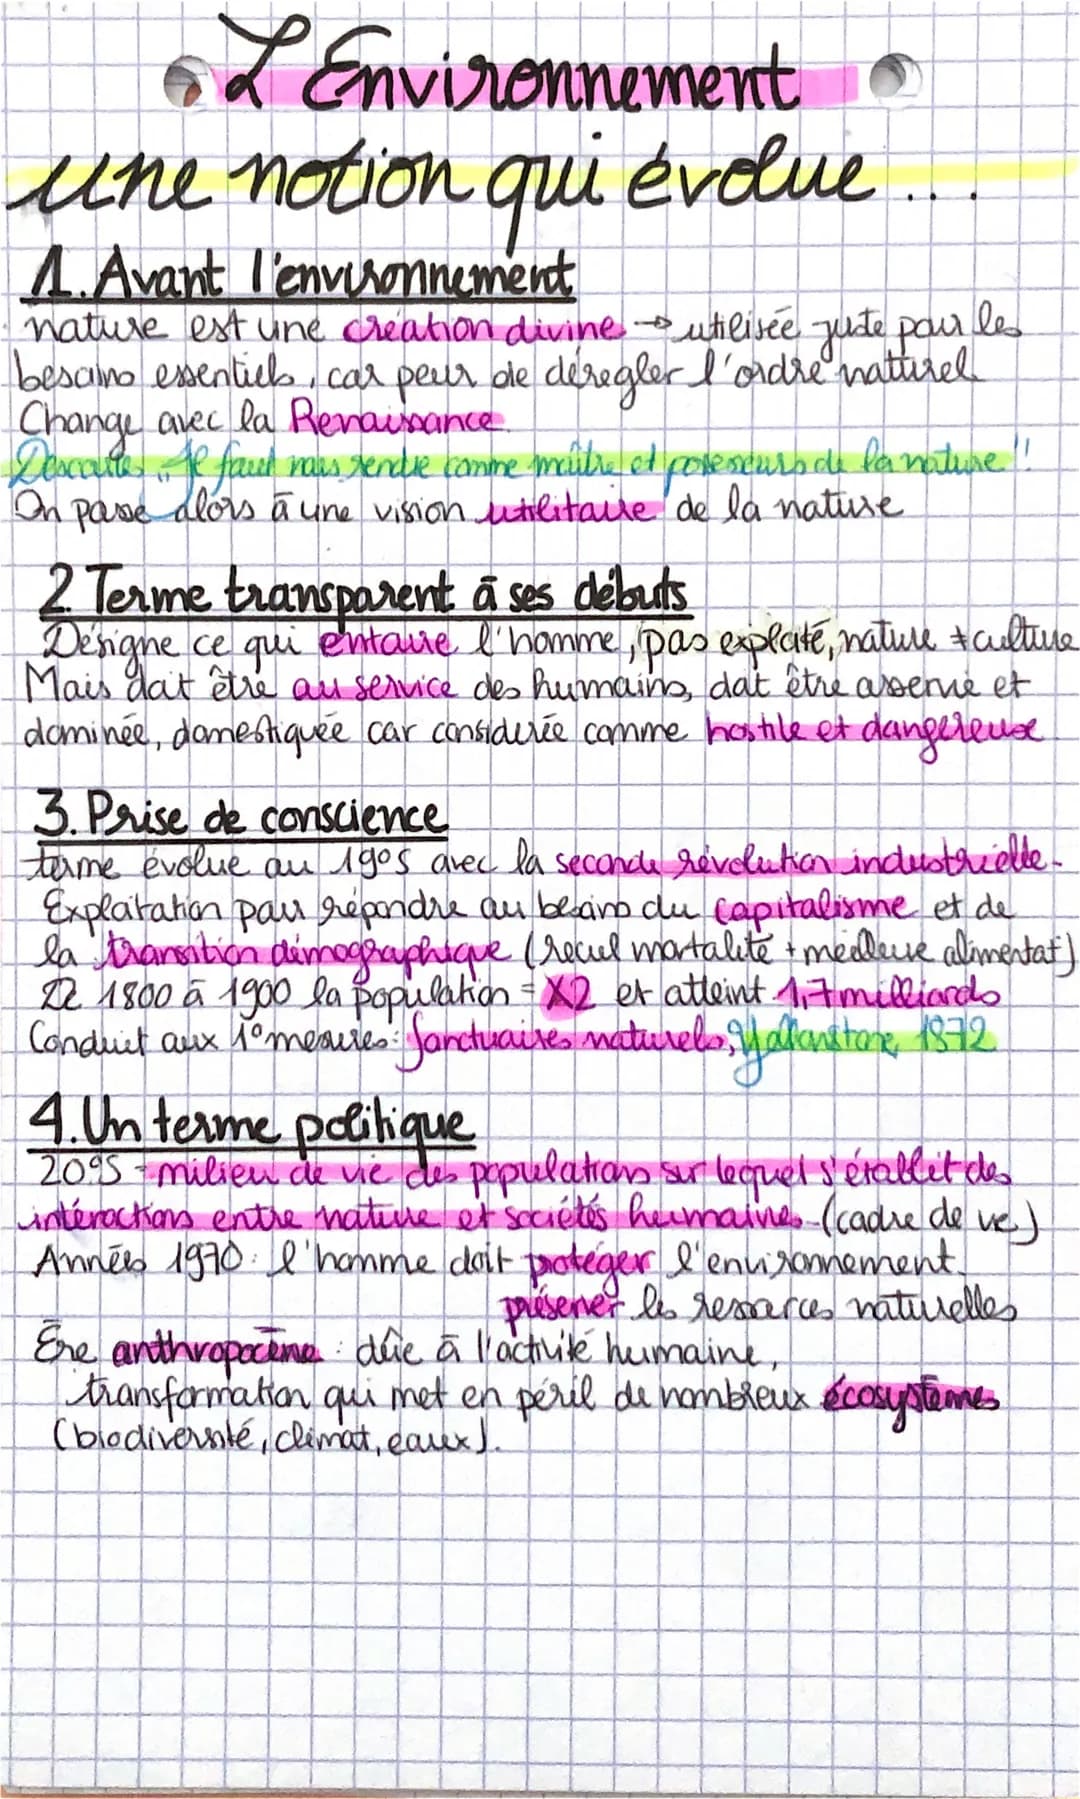 L'Environnement
une notion qui évolue...
1. Avant l'environnement
nature est une création divine → utilisée juste pour les
besoins essentiels, car peur de dérégler l'ordre naturel
Change avec la Renaissance.
Descartes "Il faut nous rendre comme maître et possesseurs de la nature"
On passe alors à une vision utilitaire de la nature
2. Terme transparent à ses débuts
Désigne ce qui entoure l'homme, pas exploité, nature ≠ culture
Mais doit être au service des humains, doit être asservie et
dominée, domestiquée car considérée comme hostile et dangereuse
3. Prise de conscience
terme évolue au 19°s avec la seconde révolution industrielle.
Exploitation pour répondre au besoins du capitalisme et de
la transition démographique (recul mortalité + meilleure alimentat°)
1800 à 1900 la population = X2 et atteint 1,7 milliards
Conduit aux 1° mesures: sanctuaires naturels, Yellowstone, 1872
4. Un terme politique
20°S = milieu de vie des populations sur lequel s'établit des
intéractions entre nature et sociétés humaines (cadre de vie)
Années 1970: l'homme doit protéger l'environnement.
préserver les ressources naturelles
Ère anthropocène: dûe à l'activité humaine,
transformation qui met en péril de nombreux écosystèmes
(biodiversité, climat, eaux).